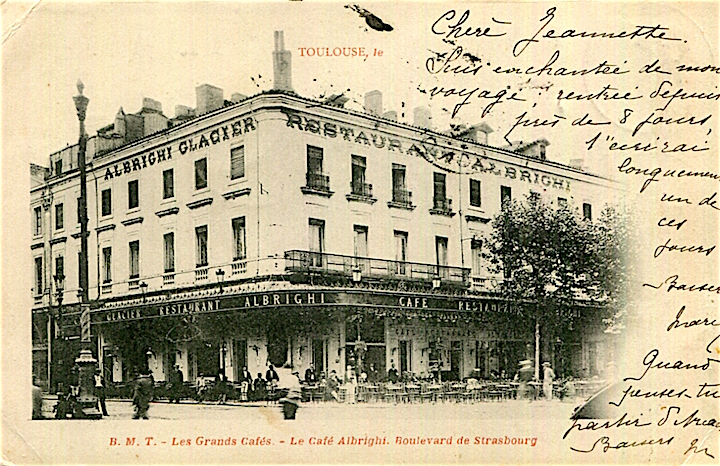 TOULOUSE, le
Chère Jeannette.
Suis enchantée de mon
voyage, rentrée depuis
près de 8 jours,
t'écrirai
longuement
un de
ces
jours
Baisers
Mary
Quand
penses-tu
partir d'
Baisers M
ALBRIGHI GLACIER
RESTAURANT ALBRIGHI
GLACIER RESTAURANT ALBRIGHI CAFÉ RESTAURANT
B. M. T. - Les Grands Cafés. - Le Café Albrighi. Boulevard de Strasbourg